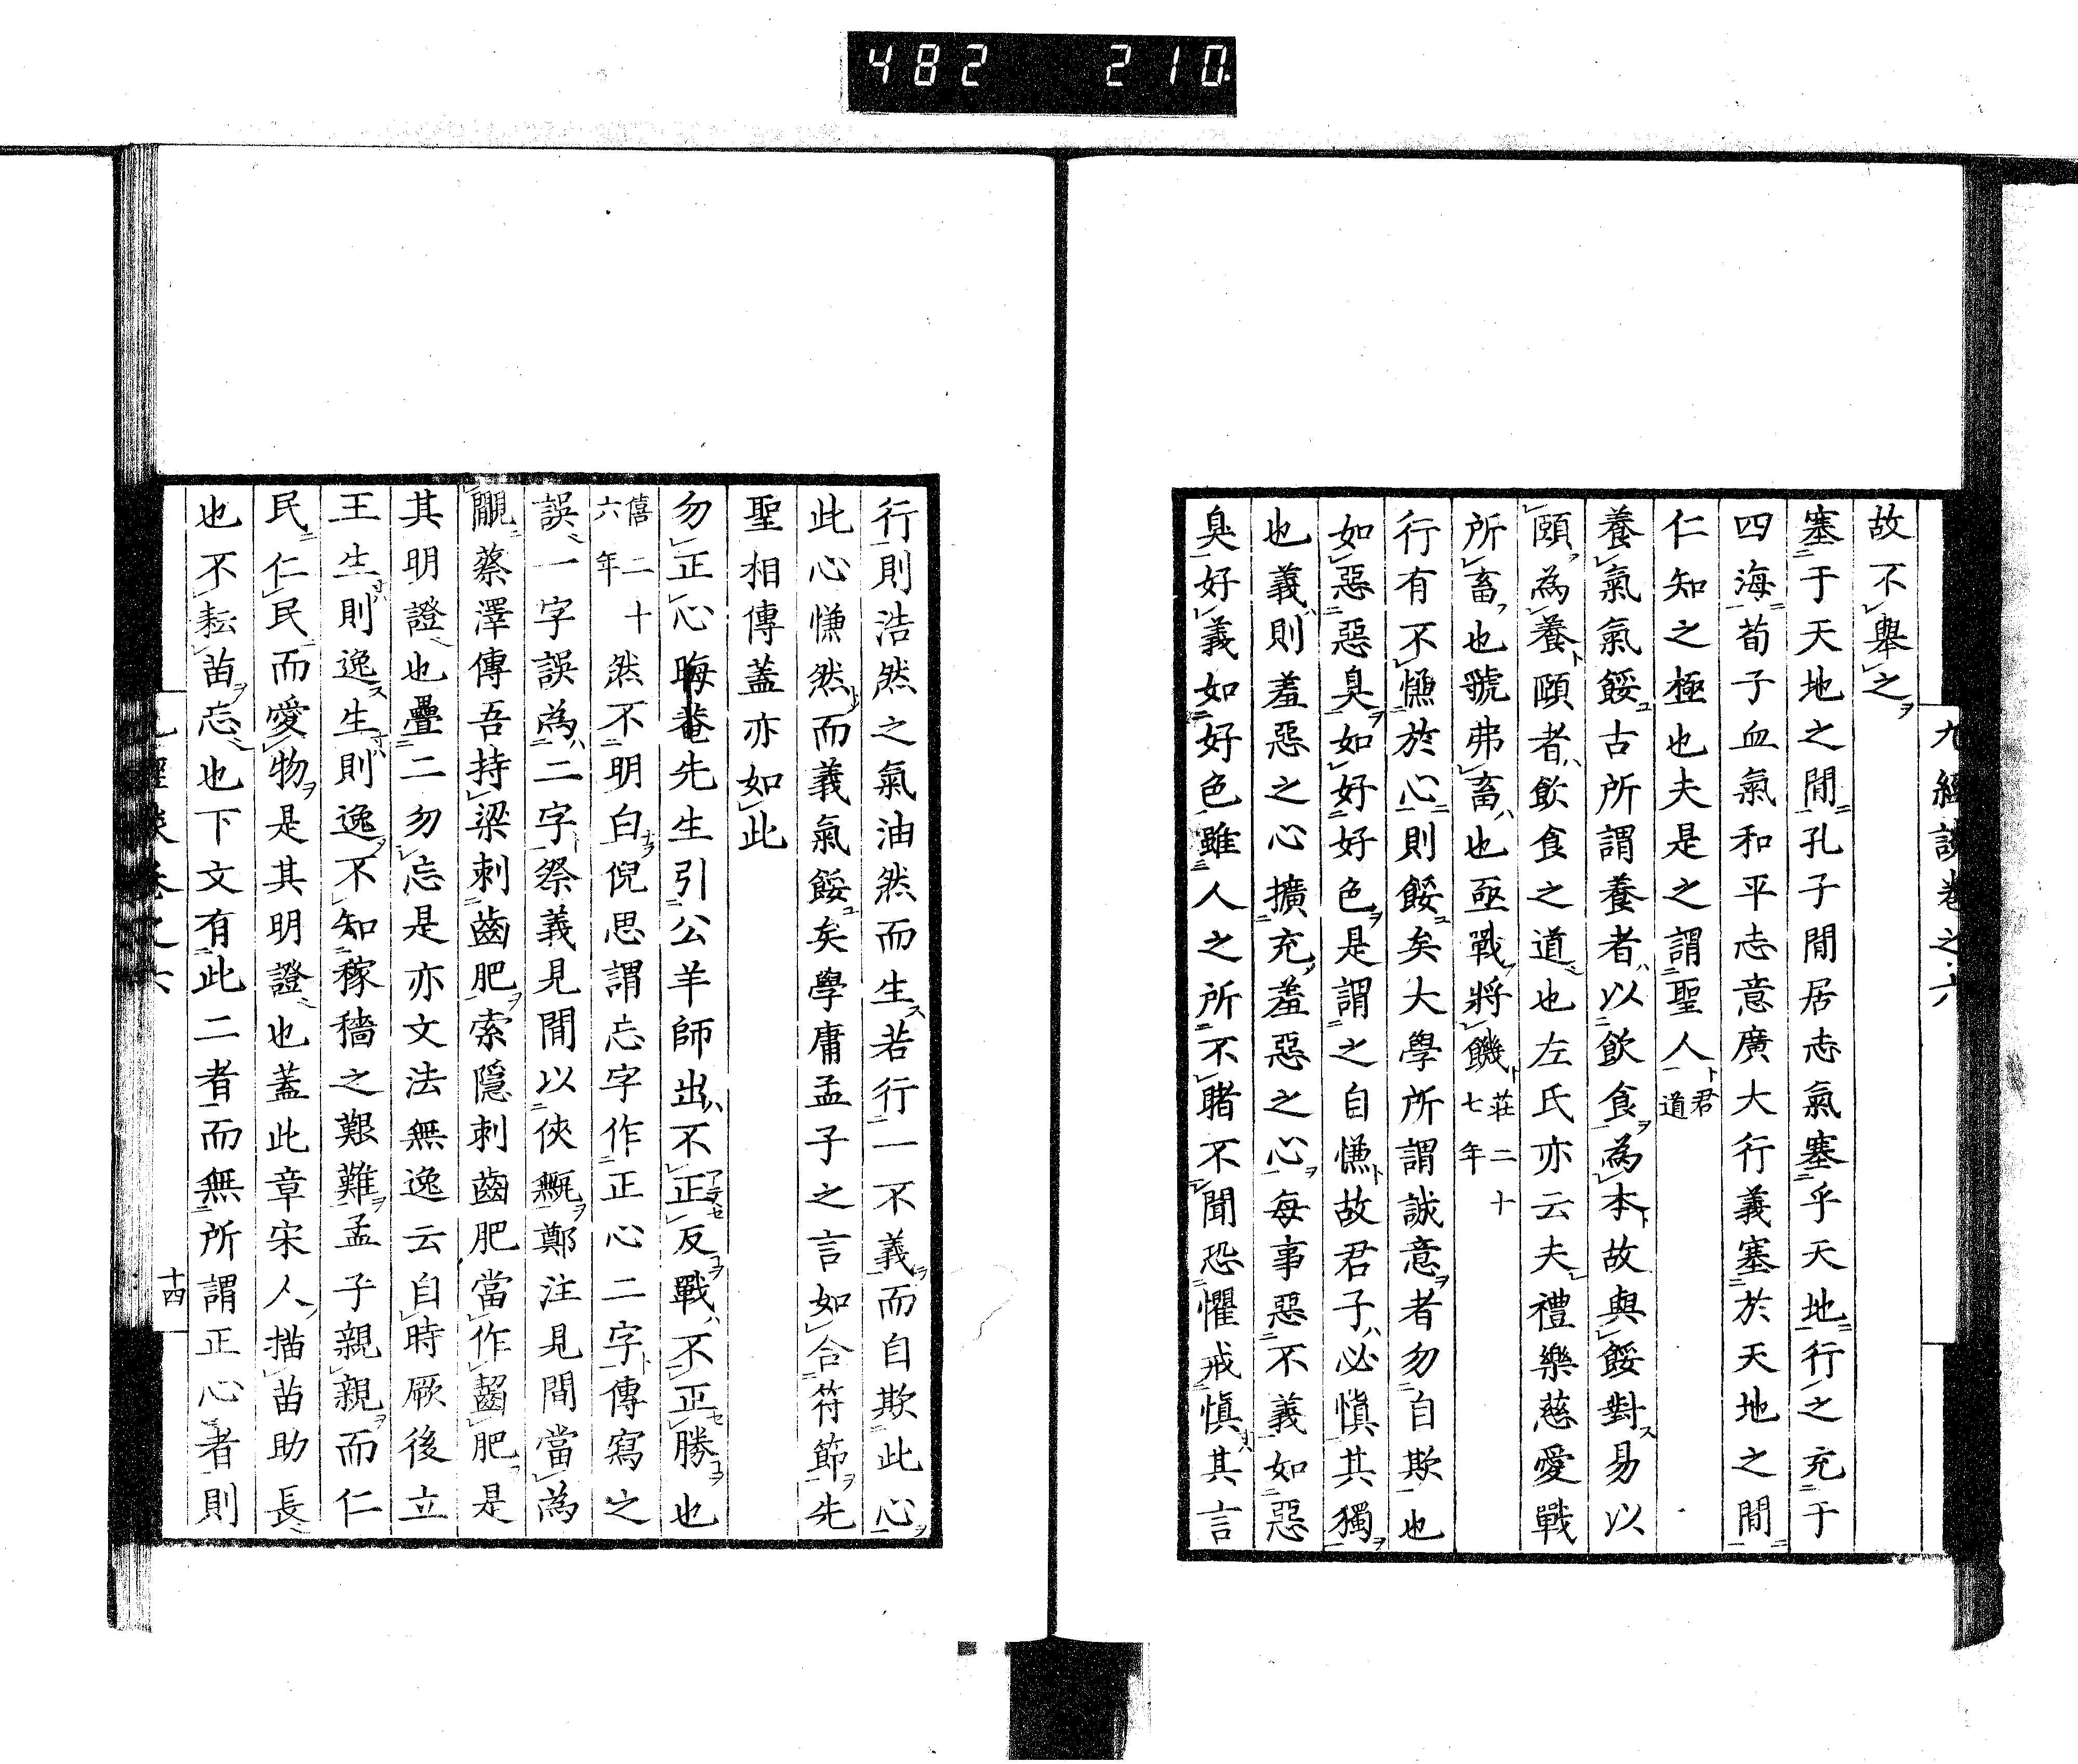 482 210.
九經談卷之六
故不舉之
塞于天地之間孔子間居志氣塞乎天地行之充于
四海荀子血氣和平志意廣大行義塞於天地之間
仁知之極也夫是之謂聖人君道
養氣氣餒古所謂養者以飲食為本故與餒對易以
頤為養頤者飲食之道也左氏亦云夫禮樂慈愛戰
所畜也虢弗畜也亟戰將饑莊二十七年
行有不慊於心則餒矣大學所謂誠意者勿自欺也
如惡惡臭如好好色是謂之自慊故君子必慎其獨
也義則羞惡之心擴充羞惡之心每事惡不義如惡
臭好義如好色雖人之所不睹不聞恐懼戒慎其言
行則浩然之氣油然而生若行一不義而自欺此心
此心慊然而義氣餒矣學庸孟子之言如合符節先
聖相傳蓋亦如此
勿正心晦菴先生引公羊師出不正反戰不正勝也
僖二十六年然不明白倪思謂忘字作正心二字傳寫之
誤一字誤為二字祭義見間以俠甒鄭注見間當為
覸蔡澤傳吾持梁刺齒肥索隱刺齒肥當作齧肥是
其明證也疊二勿忘是亦文法無逸云自時厥後立
王生則逸生則逸不知稼穡之艱難孟子親親而仁
民仁民而愛物是其明證也蓋此章宋人揠苗助長
也不耘苗忘也下文有此二者而無所謂正心者則
十四